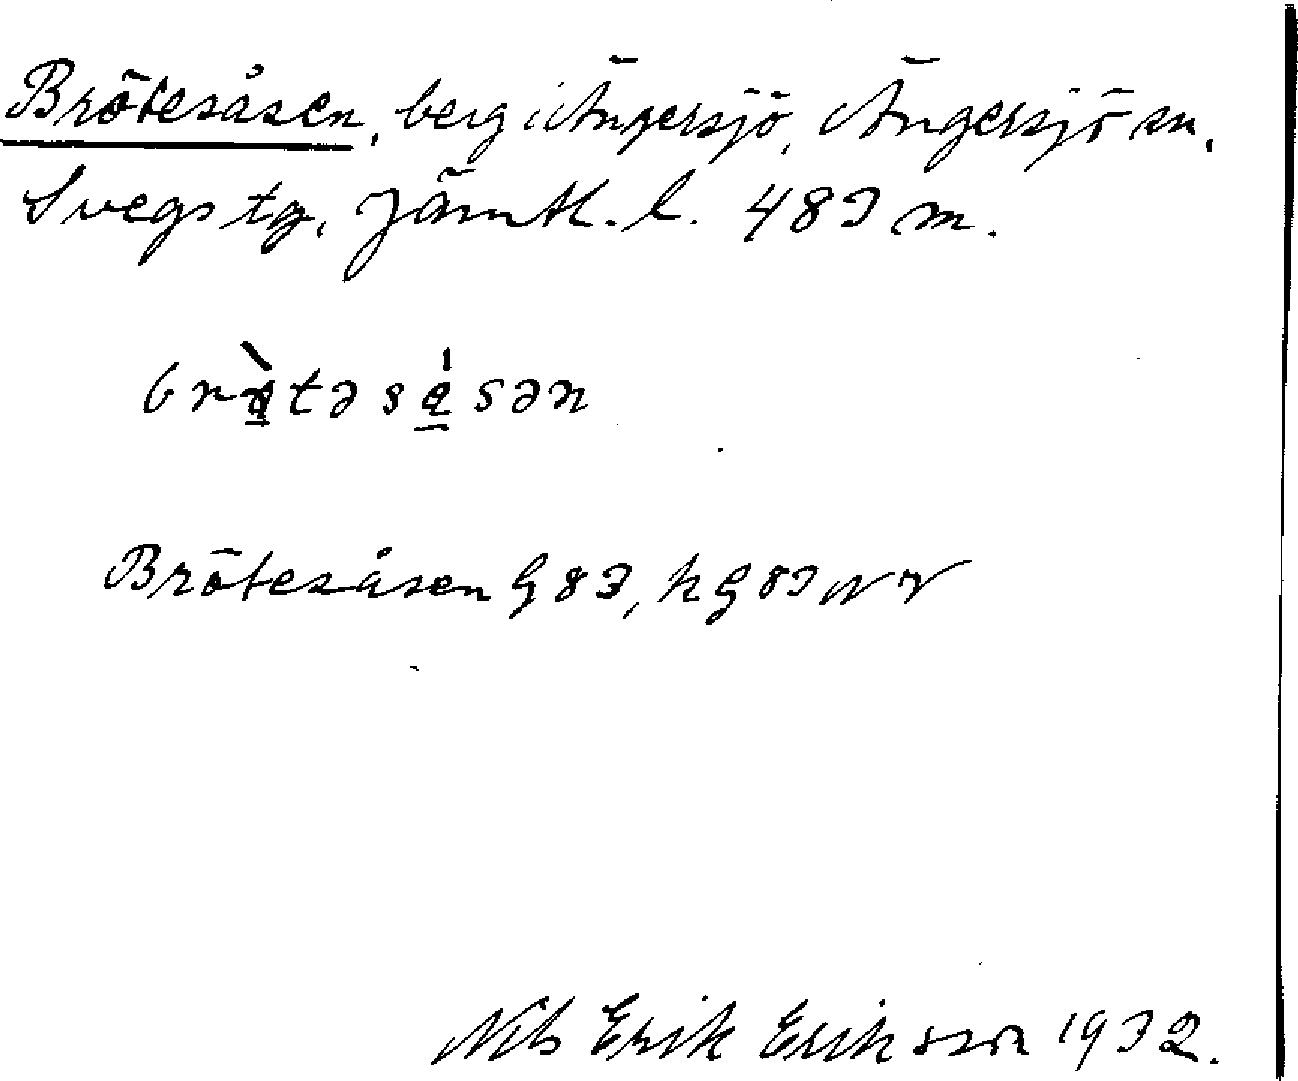 Brötesåsen, berg i Ängersjö, Ängersjö sn.
Svegs tg, Jämtl. l. 483 m.
Brötesåsen G 83, k G 83 NV
Nils Erik Eriksson 1932.